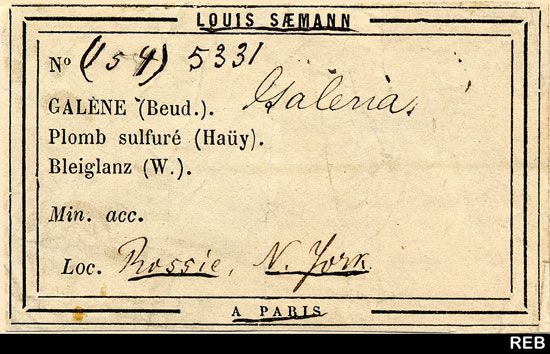 LOUIS SÆMANN
Nº (154) 5331
GALÈNE (Beud.). Galena
Plomb sulfuré (Haüy).
Bleiglanz (W.).
Min. acc.
Loc. Rossie, N. York
A PARIS
REB